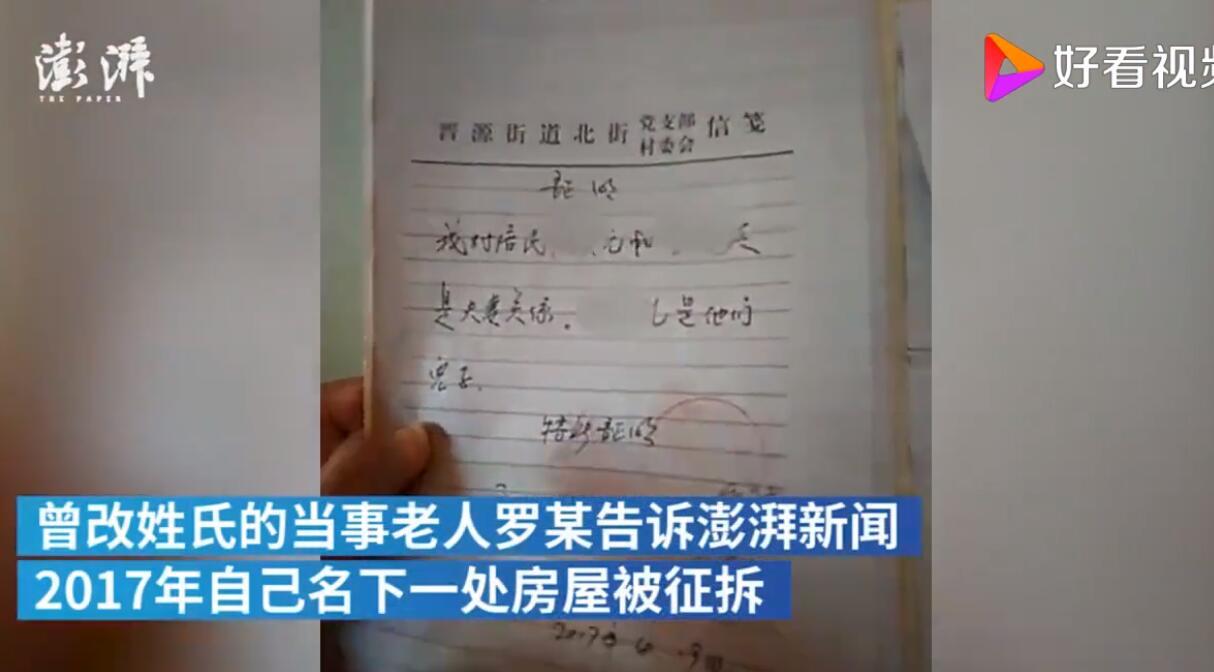 澎湃
THE PAPER
好看视频
晋源街道北街党支部村委会信笺
证明
我村居民
是夫妻关系。 是他们
儿子。
特此证明
曾改姓氏的当事老人罗某告诉澎湃新闻
2017年自己名下一处房屋被征拆